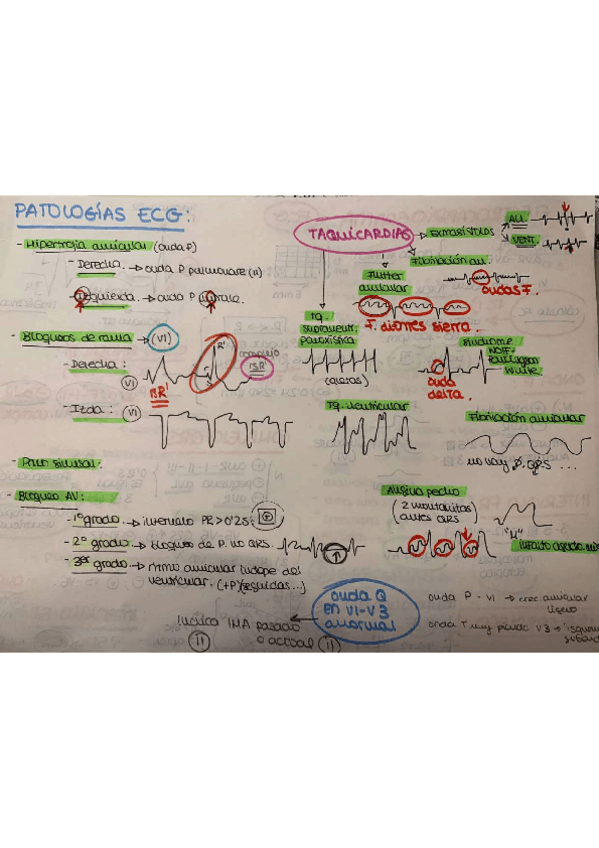 PATOLOGÍAS ECG:
- Hipertrofia auricular (onda P)
- Derecha. → onda P pulmonare (II)
- Izquierda. → onda P
- Bloqueos de rama → (V1)
- Derecha:
V1
R'
r
S
complejo
rSR'
- Izda: V1
- Paro sinusal.
- Bloqueo AV:
- 1º grado → intervalo PR > 0'2s.
- 2º grado → bloqueo de P. no QRS.
- 3er grado → ritmo auricular indepe del
ventricular. (+P)(seguidas...)
TAQUICARDIAS
EXTRASÍSTOLES
AU.
VENT.
Fibrilación au.
ondas F.
Flutter
auricular
F. dientes sierra
Tq.
supraventr.
paroxística
(caseras)
Síndrome
Wolff-
Parkinson
White
onda
delta.
Tq. ventricular
Fibrilación auricular
no hay P, QRS ...
Angina pecho
(2 montañitas)
antes QRS
"M"
infarto agudo mio
onda Q
en V1-V3
anormal
indica IMA pasado
o actual (ii)
(ii)
onda P - V1 → crec auricular
izquo
onda T muy picuda V3 → isquem
suband